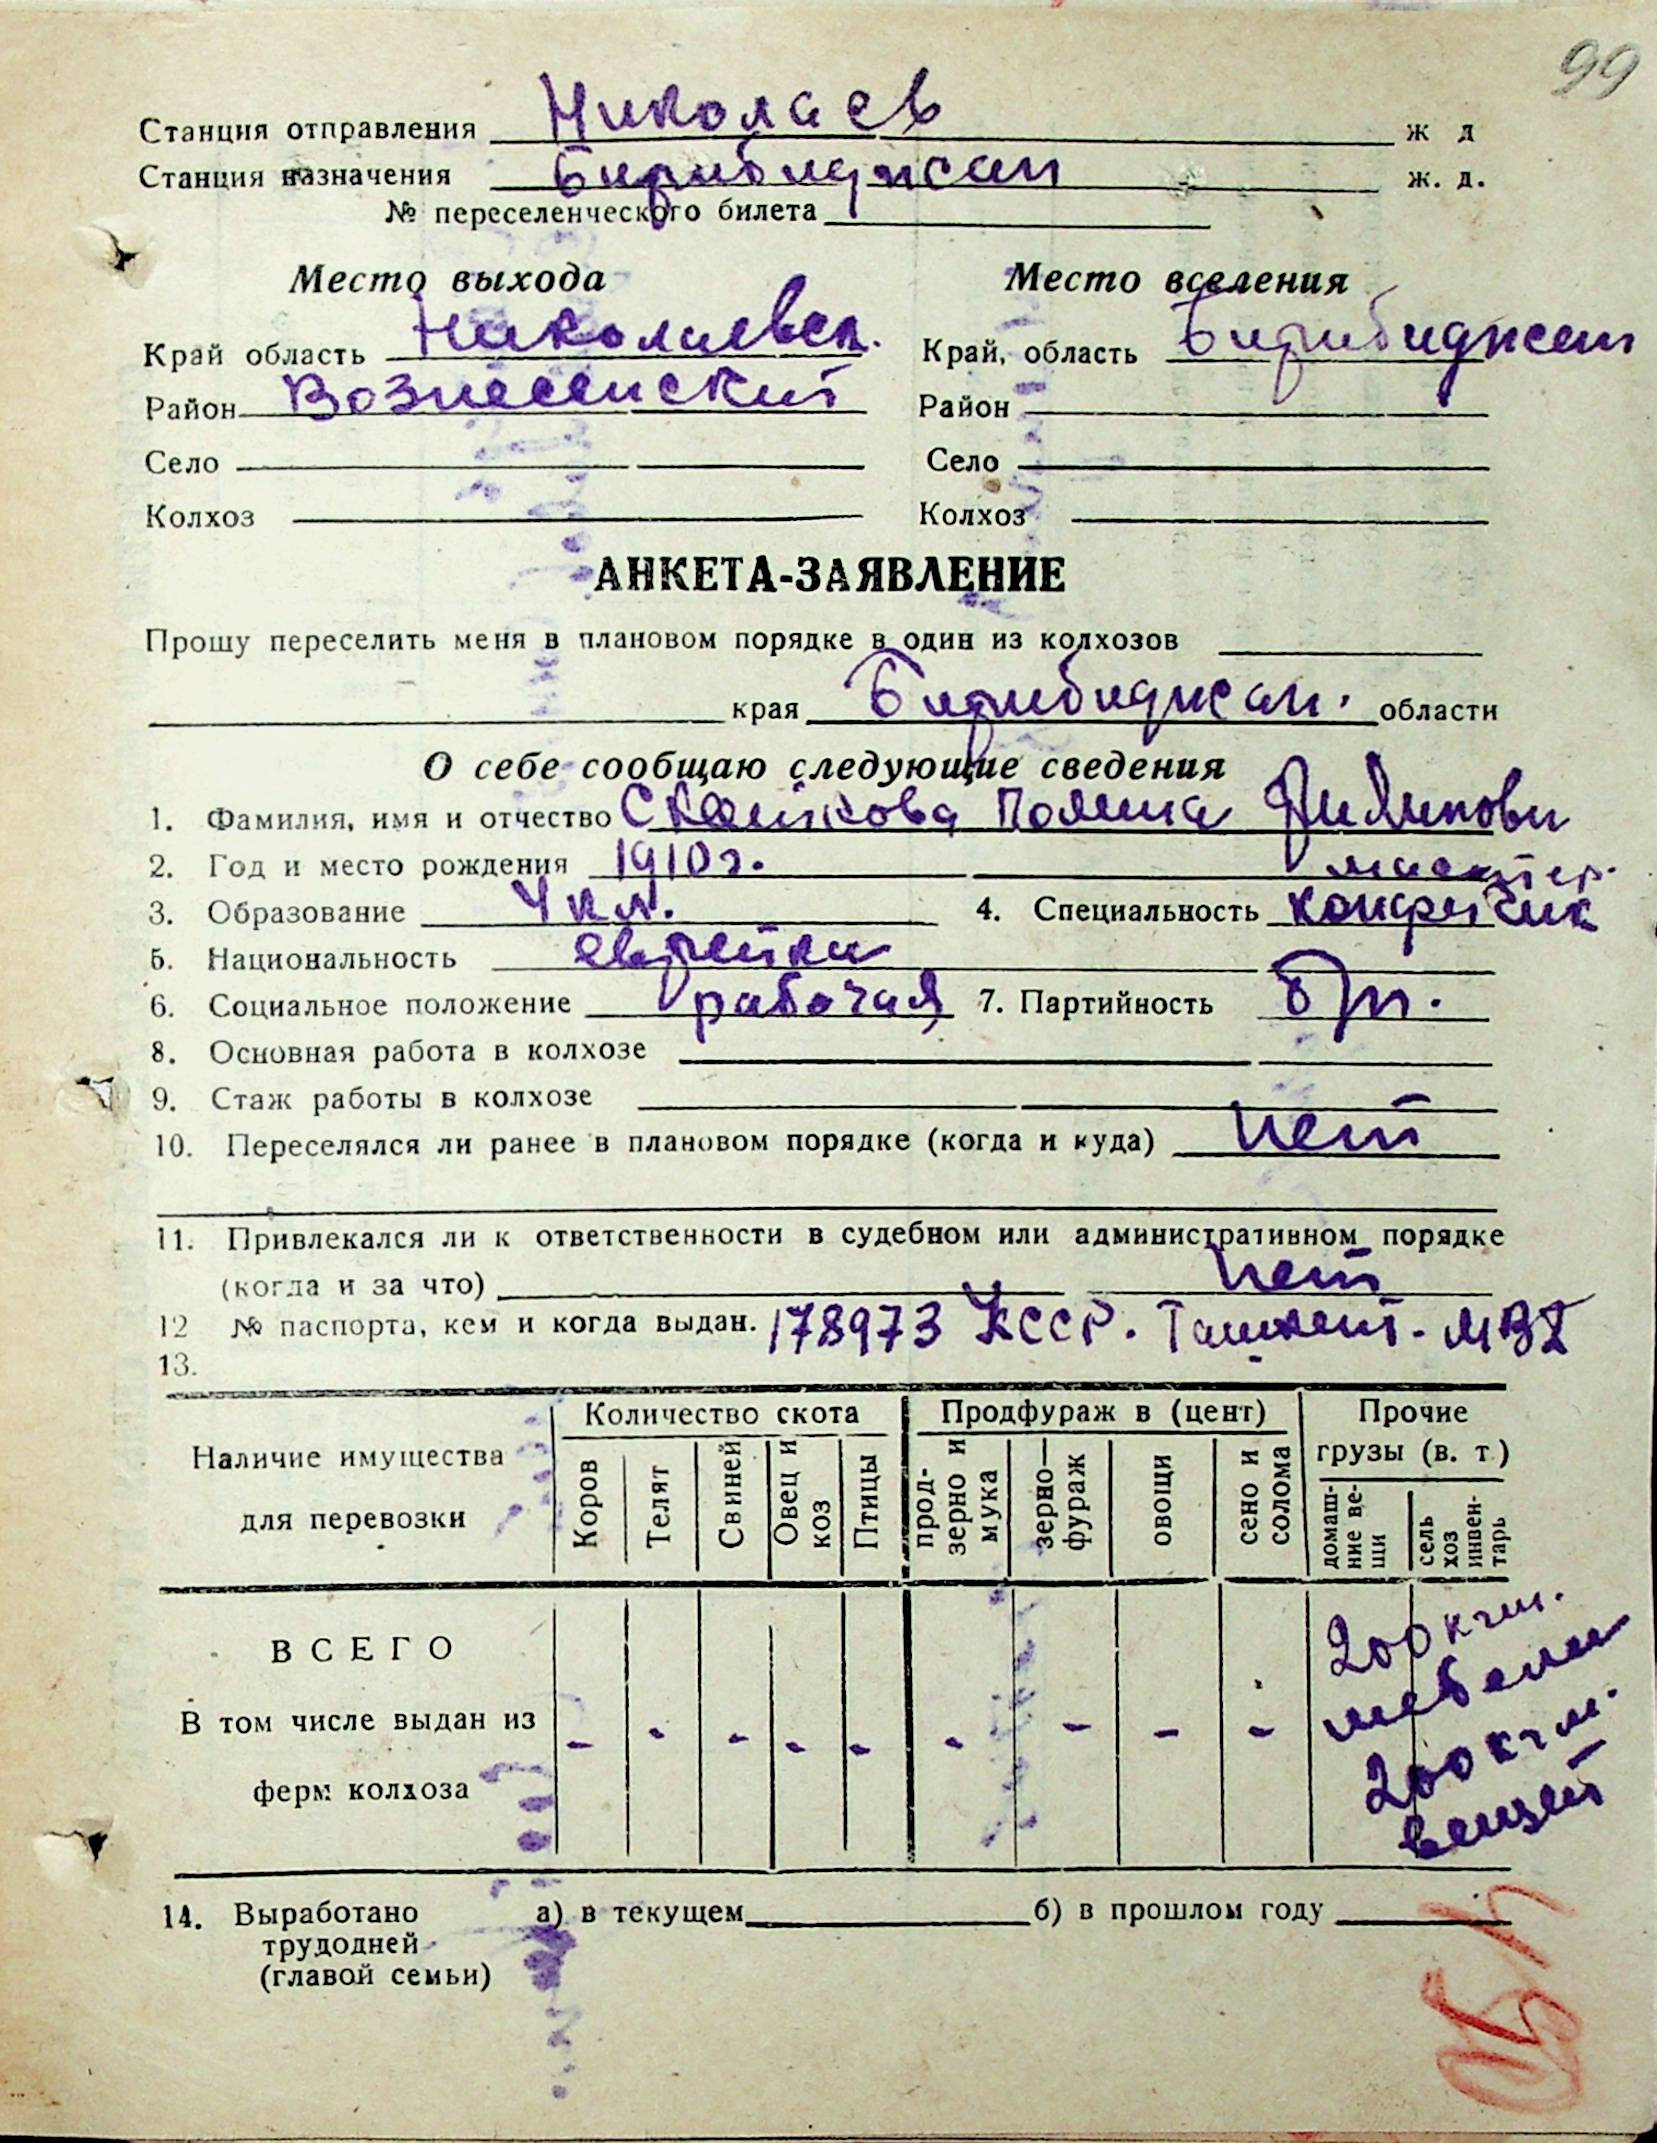 99
Станция отправления Николаев ж д
Станция назначения Биробиджан ж. д.
№ переселенческого билета
Место выхода Место вселения
Край область Николаевск. Край, область Биробиджан
Район Вознесенский Район
Село Село
Колхоз Колхоз
АНКЕТА-ЗАЯВЛЕНИЕ
Прошу переселить меня в плановом порядке в один из колхозов
края Биробиджан. области
О себе сообщаю следующие сведения
1. Фамилия, имя и отчество Полина Филиповн
2. Год и место рождения 1910 г.
мастер.
3. Образование 4 кл. 4. Специальность
5. Национальность еврейка
6. Социальное положение рабочая 7. Партийность б/п.
8. Основная работа в колхозе
9. Стаж работы в колхозе
10. Переселялся ли ранее в плановом порядке (когда и куда) нет
11. Привлекался ли к ответственности в судебном или административном порядке
(когда и за что) нет
12 № паспорта, кем и когда выдан. 178973 Ташкент.
13.
Наличие имущества для перевозки
Количество скота Продфураж в (цент) Прочие грузы (в. т.)
Коров Телят Свиней Овец и коз Птицы прод-зерно и мука зерно—фураж овощи сено и солома домаш-ние ве-щи сель хоз инвен-тарь
ВСЕГО
В том числе выдан из
ферм колхоза
- - - - - - - - -
200 кгм.
мебели
200 кгм.
вещей
14. Выработано а) в текущем б) в прошлом году
трудодней
(главой семьи)